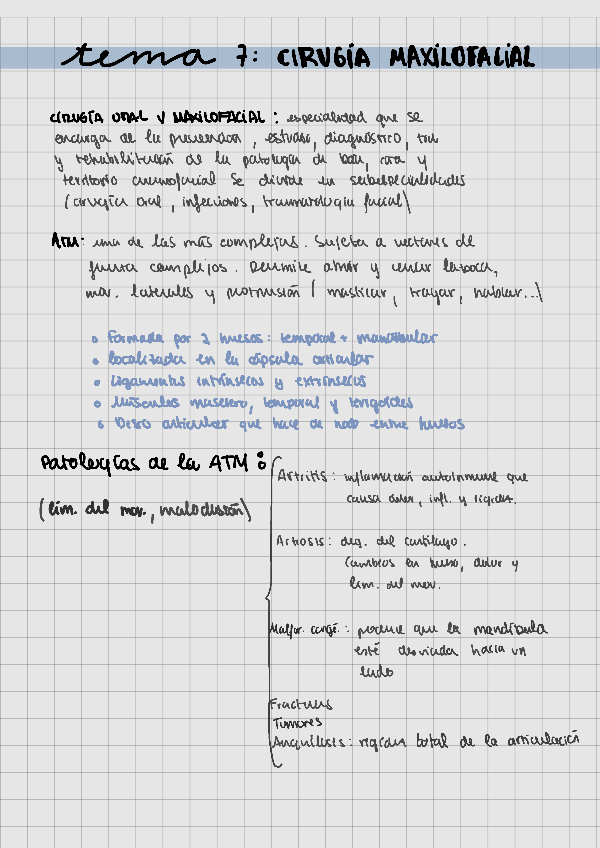 tema 7: CIRUGÍA MAXILOFACIAL
CIRUGÍA ORAL Y MAXILOFACIAL: especialidad que se
encarga de la prevención, estudio, diagnóstico, tto
y rehabilitación de la patología de boca, cara y
territorio craneofacial se divide en subespecialidades
(cirugía oral, infecciones, traumatología facial)
ATM: una de las más complejas. Sujeta a vectores de
fuerza complejos. Permite abrir y cerrar la boca,
mov. laterales y protrusión (masticar, tragar, hablar...)
• Formada por 2 huesos: temporal + mandibular
• Localizada en la cápsula articular
• Ligamentos intrínsecos y extrínsecos
• Músculos masetero, temporal y
• Disco articular que hace de entre huesos
Patologías de la ATM:
(lim. del mov., maloclusión)
Artritis: inflamación autoinmune que
causa dolor, infl. y rigidez.
Artrosis: deg. del cartílago.
Cambios en hueso, dolor y
lim. del mov.
Malfor. congé.: produce que la mandíbula
esté desviada hacia un
lado
Fracturas
Tumores
Anquilosis: rigidez total de la articulación